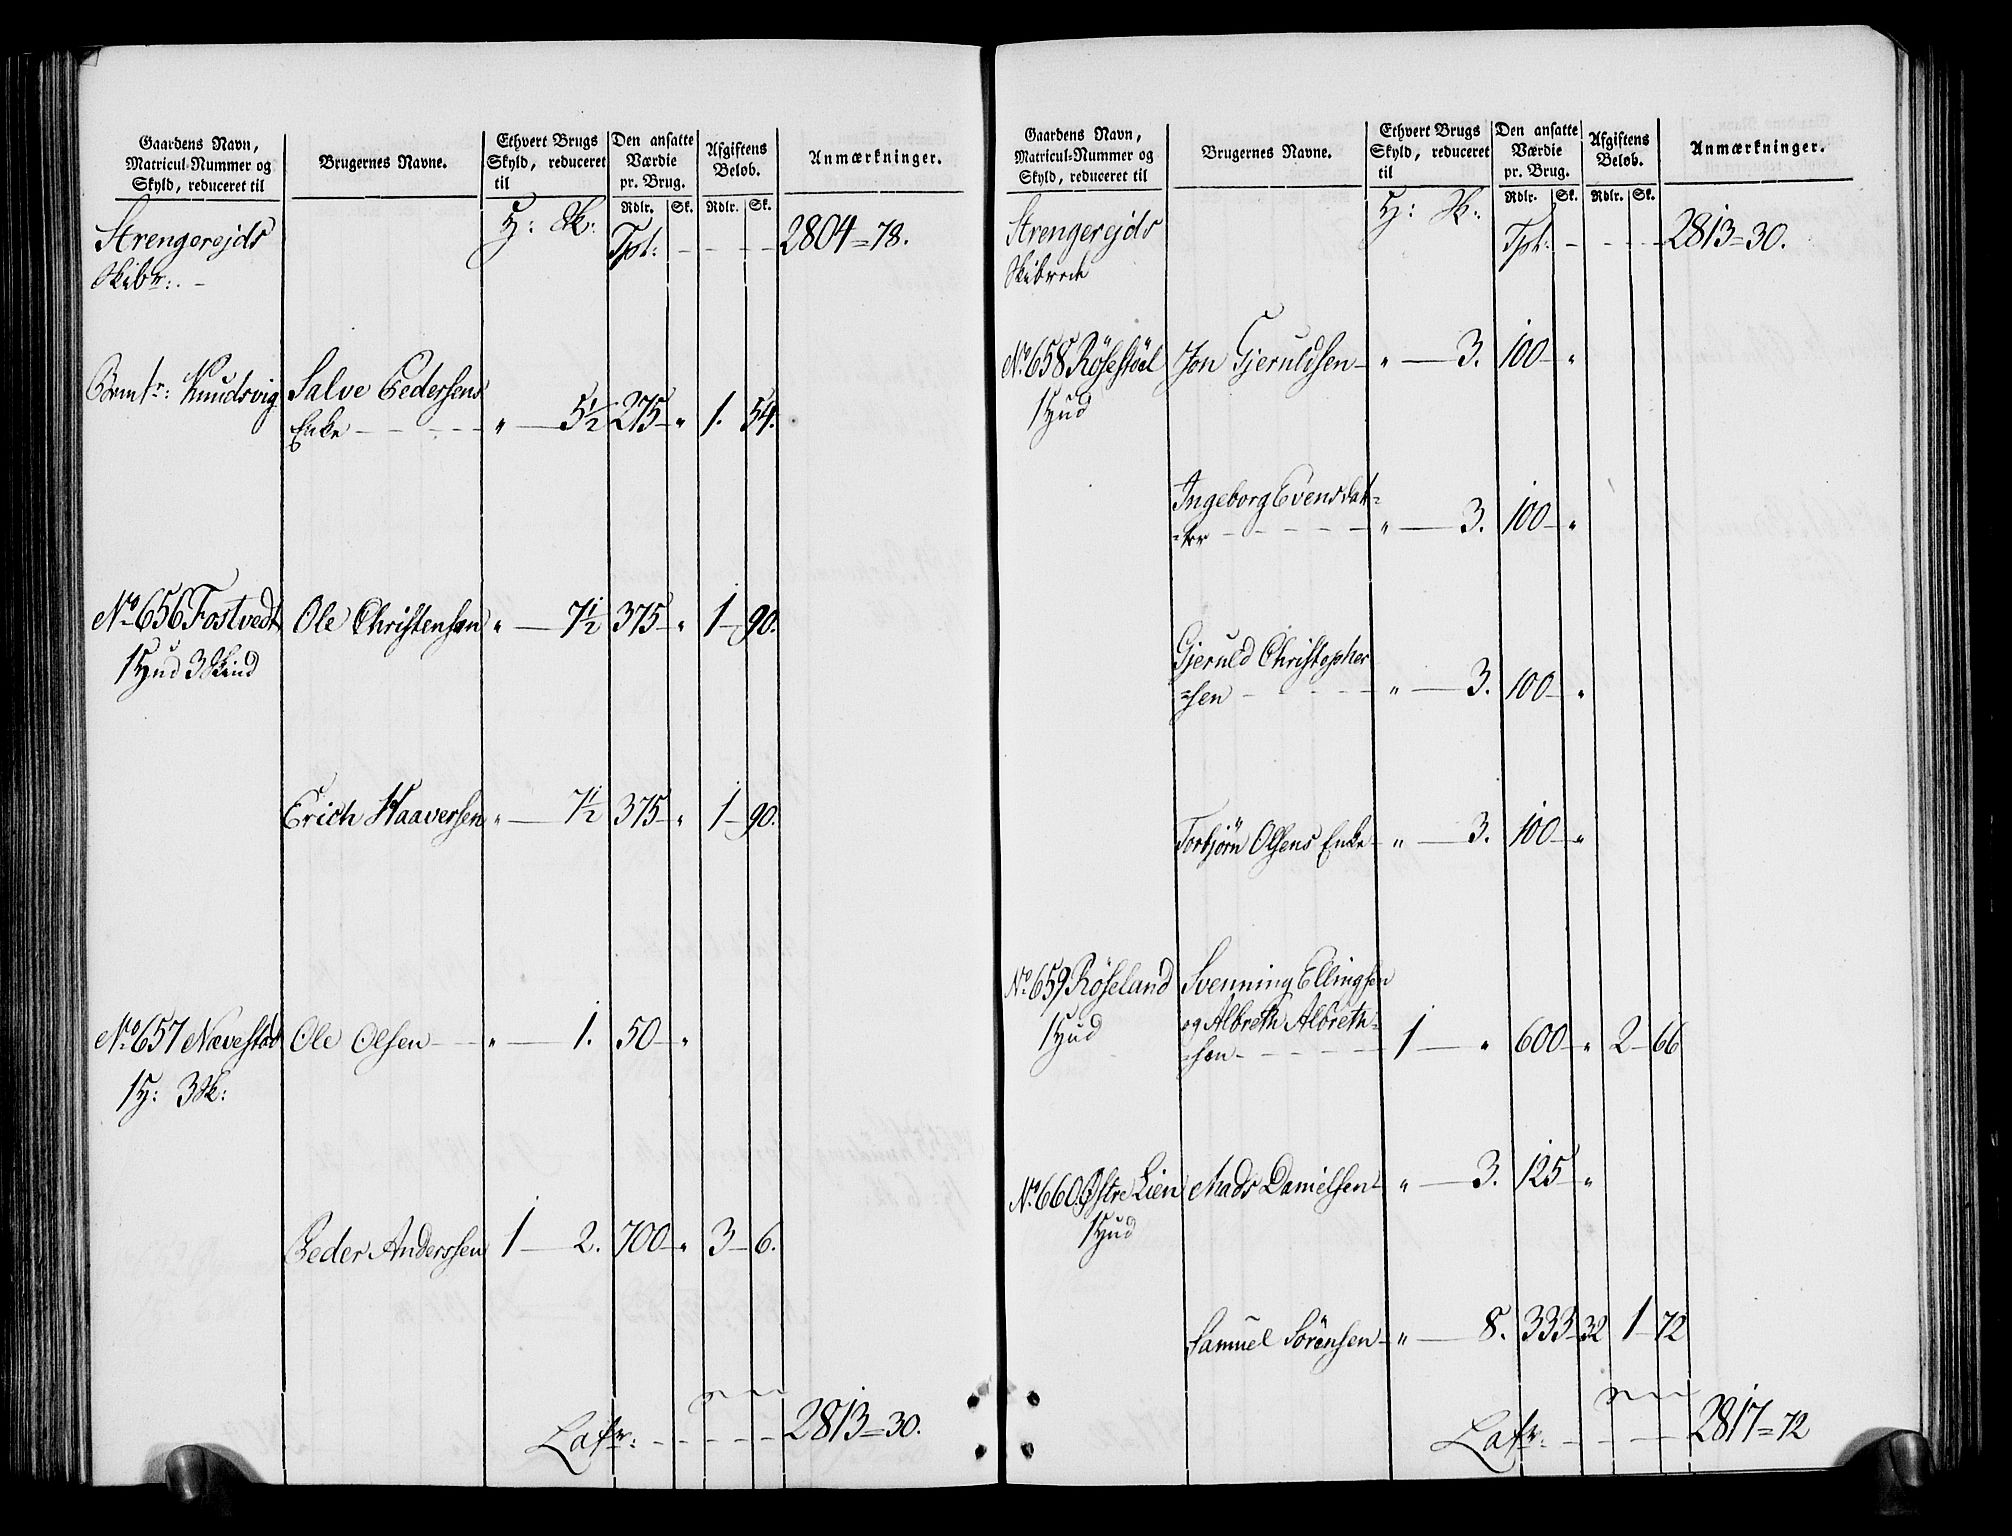 Gaardens Navn, Matricul-Nummer og Skyld, reduceret til
Brugernes Navne.
Ethvert Brugs Skyld, reduceret til
Den ansatte Værdie pr. Brug.
Afgiftens Beløb.
Anmærkninger.
Rdlr. Sk. Rdlr. Sk.
Strengereids H: Sk: Tpt: - - - - 2804=78.
Skibr: -
Knudsvig Salve Pedersens
Enke - - - - - " — 5½ 275 — " 1. 54.
No 656 Fostvedt Ole Christensen " — 7½ 375 — " 1 — 90.
1 Hud 3 Skind
Erich Haaversen " — 7½ 375 — " 1 — 90.
No 657 Nævestad Ole Olsen — " — 1. 50 — "
1 H: 3 Sk:
Peder Anderssen 1 — 2. 700 — " 3 — 6.
Lafr: - - - - - 2813=30.
Gaardens Navn, Matricul-Nummer og Skyld, reduceret til
Brugernes Navne.
Ethvert Brugs Skyld, reduceret til
Den ansatte Værdie pr. Brug.
Afgiftens Beløb.
Anmærkninger.
Rdlr. Sk. Rdlr. Sk.
Strengereids H: Sk: Tpt: - - - - 2813=30.
Skibrede
No 658 Röséstöel Jon Gjeruldsen — " — 3. 100 — "
1 Hud
Ingeborg Evensdat=
=ter - - - - - " — 3. 100 — "
Gjeruld Christopher
=sen - - - - - " — 3. 100 — "
Torbjörn Olsens Enke — " — 3. 100 — "
No 659 Röseland Svenning Ellingsen
1 Hud og Albreth Albreth=
=sen - - - - - 1 — " 600 — " 2 — 66
No 660. Østre Lien Mads Danielsen " — 3. 125 — "
1 Hud
Samuel Sörensen — " — 8. 333 — 32 1 — 72
Lafr: - - - - 2817=72